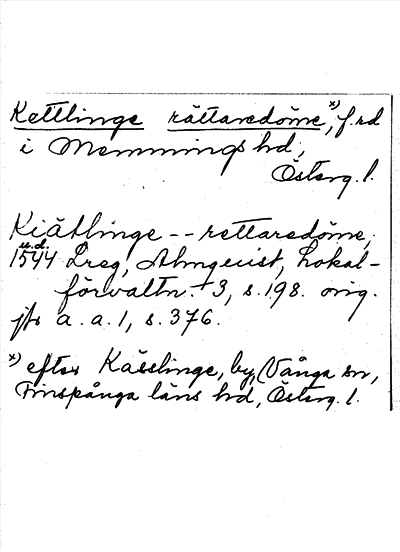 Kettlinge rättaredöme *), f.rd
i Memmings hd,
Österg. l.
Kiätlinge -- rettaredöme,
u.d.
1544 Lreg, Almquist, Lokal-
förvaltn. 3, s. 198. orig.
jfr a. a. 1, s. 376.
*) efter Kässlinge, by, Vånga sn,
Finspånga läns hd, Österg. l.